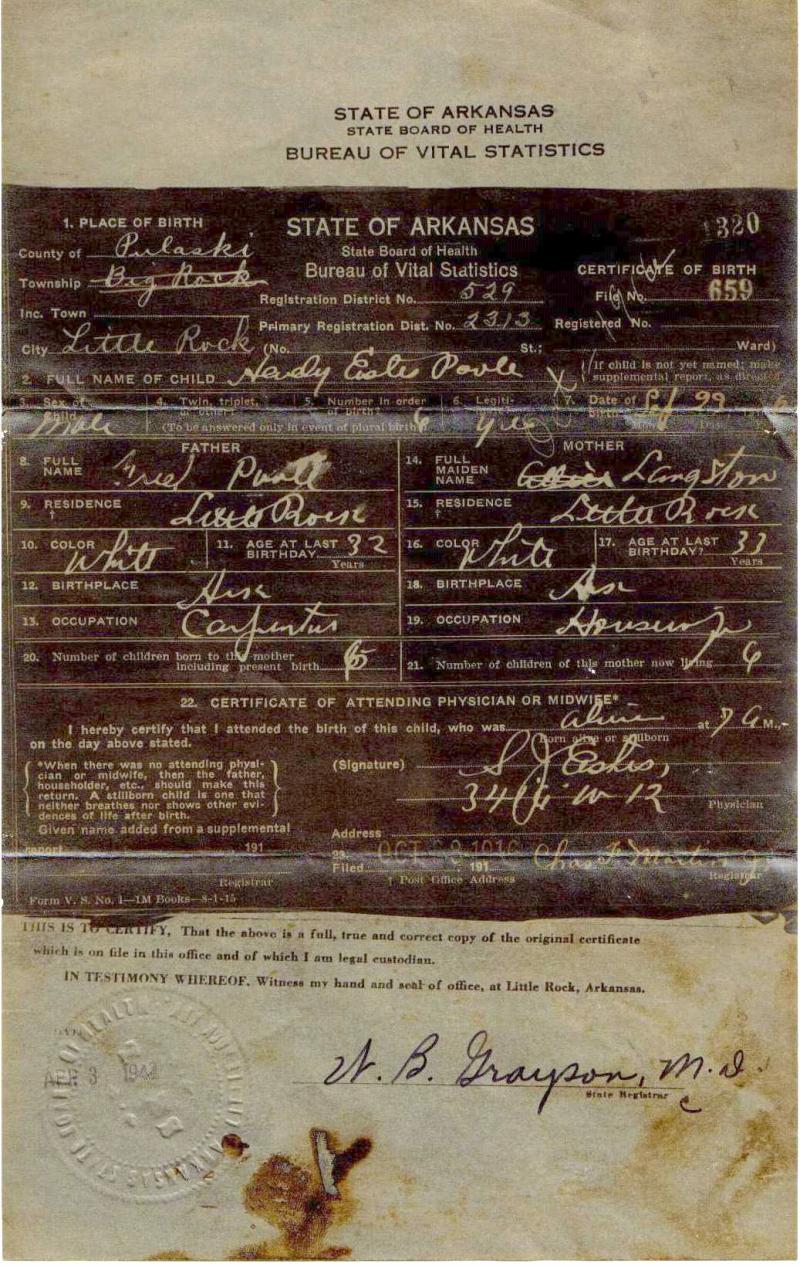 STATE OF ARKANSAS
STATE BOARD OF HEALTH
BUREAU OF VITAL STATISTICS
1. PLACE OF BIRTH
STATE OF ARKANSAS
1320
County of Pulaski
State Board of Health
Township Big Rock
Bureau of Vital Statistics
CERTIFICATE OF BIRTH
Registration District No. 529
File No. 659
Inc. Town
Primary Registration Dist. No. 2313
Registered No.
City Little Rock (No. St.; Ward)
2. FULL NAME OF CHILD Hardy Estes Poole
(If child is not yet named; make supplemental report, as directed
3. Sex of Child Male
4. Twin, triplet, or other?
5. Number in order of birth?
(To be answered only in event of plural birth)
6. Legiti-
7. Date of birth
FATHER
MOTHER
8. FULL NAME Fred Poole
14. FULL MAIDEN NAME Langston
9. RESIDENCE † Little Rock
15. RESIDENCE † Little Rock
10. COLOR White
11. AGE AT LAST BIRTHDAY 32 Years
16. COLOR White
17. AGE AT LAST BIRTHDAY? 33 Years
12. BIRTHPLACE Ark
18. BIRTHPLACE Ark
13. OCCUPATION Carpenter
19. OCCUPATION Housewife
20. Number of children born to this mother including present birth
21. Number of children of this mother now living 6
22. CERTIFICATE OF ATTENDING PHYSICIAN OR MIDWIFE*
I hereby certify that I attended the birth of this child, who was alive at 7 A M.,
Born alive or stillborn
on the day above stated.
*When there was no attending physi-
cian or midwife, then the father,
householder, etc., should make this
return. A stillborn child is one that
neither breathes nor shows other evi-
dences of life after birth.
(Signature) S J Estes,
W 12
Physician
Given name added from a supplemental
report 191
Address
Registrar
23. Filed OCT 1916 191 Chas F Martin Jr
† Post Office Address
Registrar
Form V. S. No. 1—1M Books—8-1-15
THIS IS TO CERTIFY, That the above is a full, true and correct copy of the original certificate
which is on file in this office and of which I am legal custodian.
IN TESTIMONY WHEREOF, Witness my hand and seal of office, at Little Rock, Arkansas.
APR 3
W. B. Grayson, M.D.
State Registrar